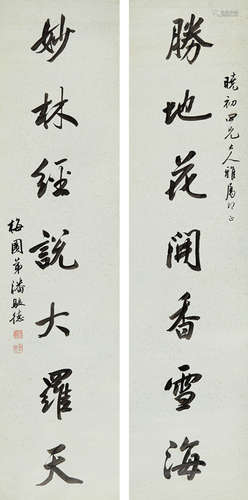 曉初四兄大人雅屬即正
勝地花開香雪海
妙林經說大羅天
梅園弟潘